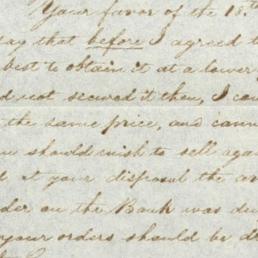 Your favor of the 18th
say that before I agreed t
best to obtain it at a lower
d not secured it then, I co
the same price, and cann
should wish to sell aga
d at your disposal the a
der on the Bank was du
your orders should be d